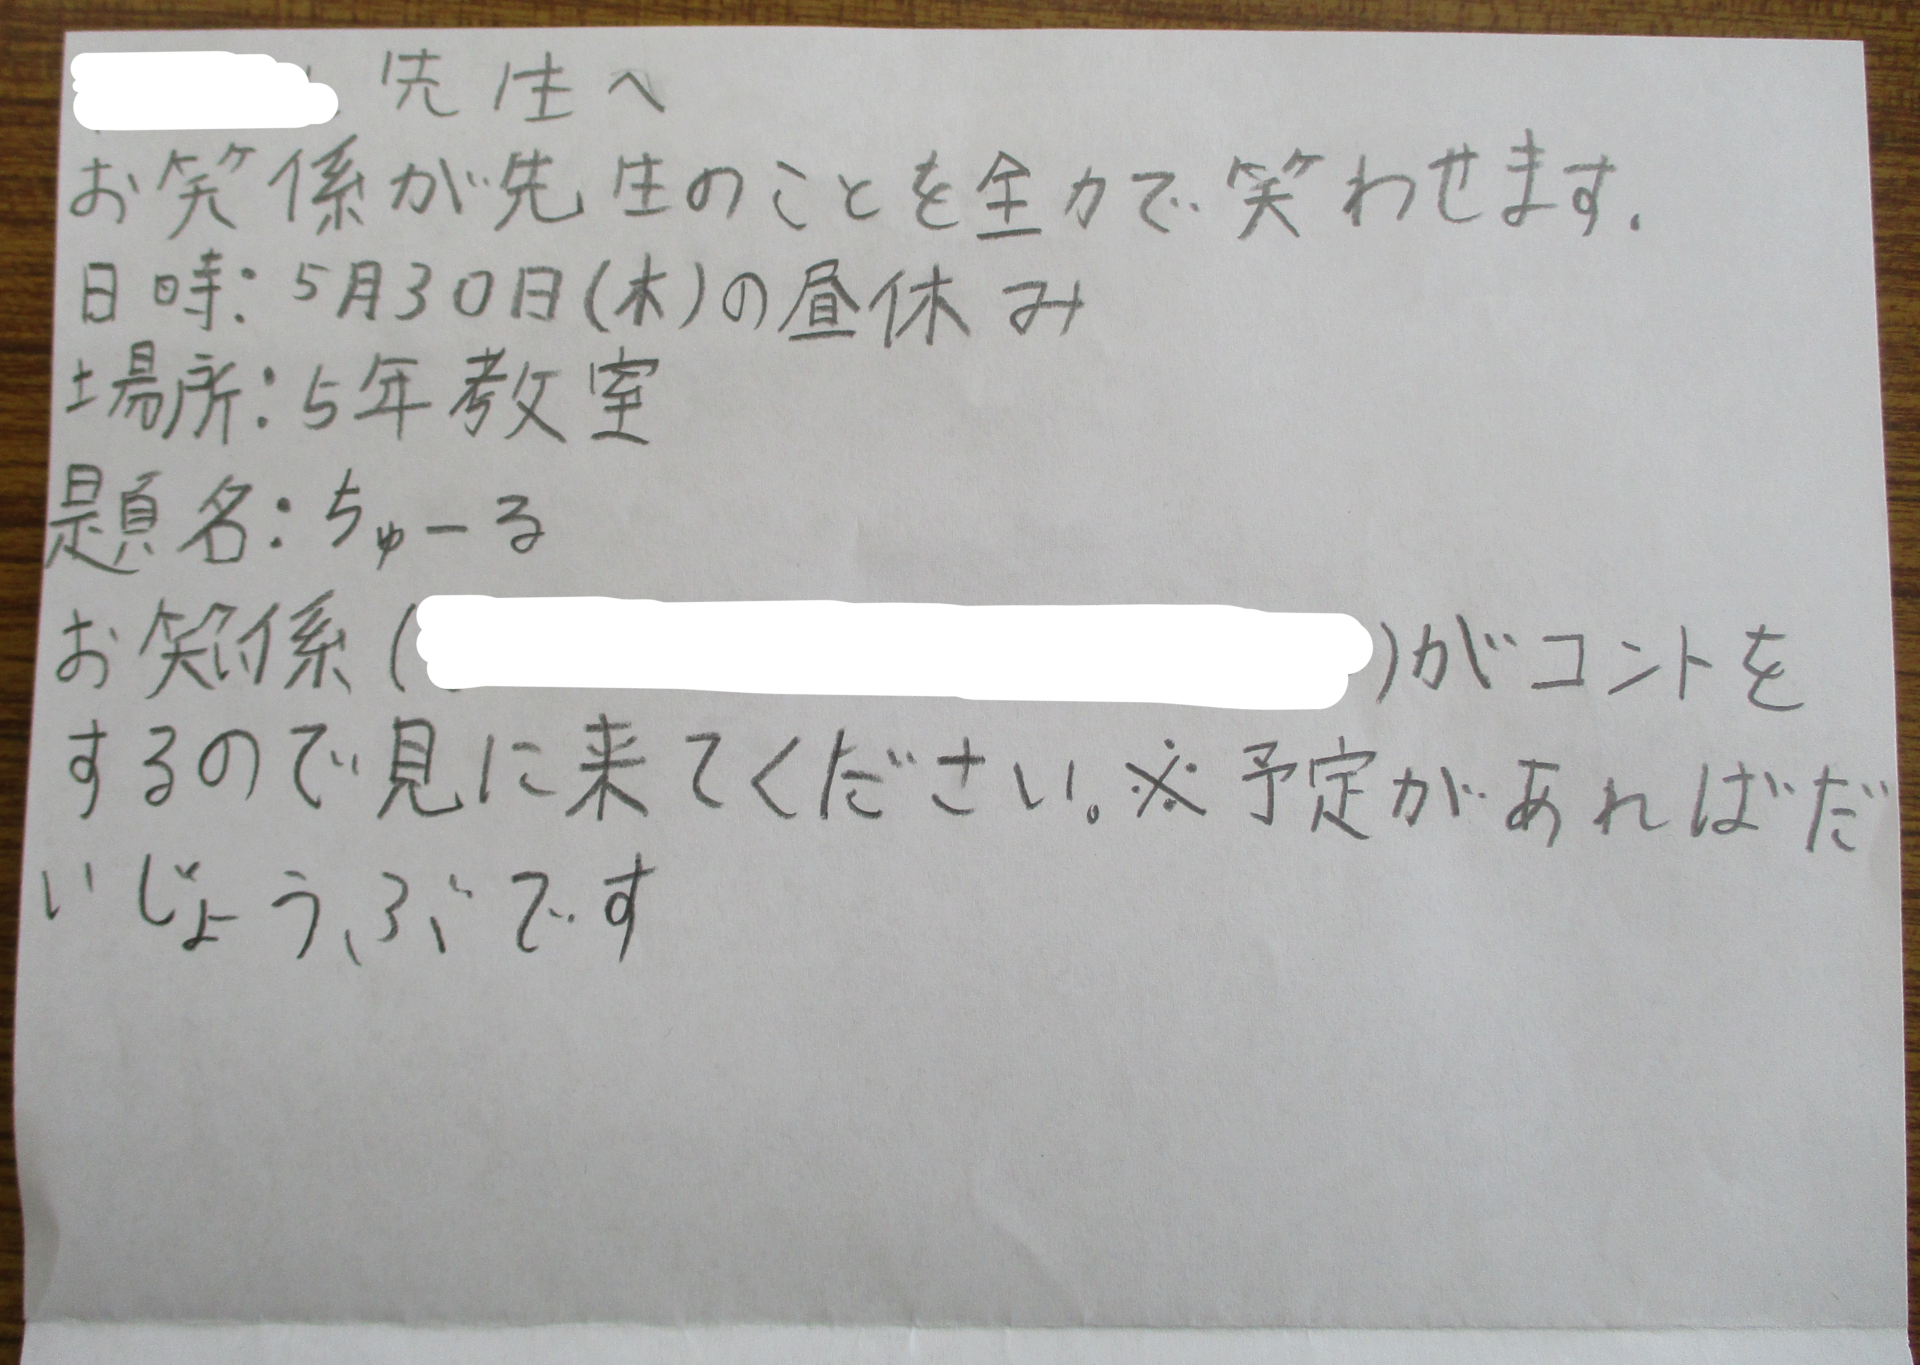 先生へ
お笑係が先生のことを全力で笑わせます.
日時:5月30日(木)の昼休み
場所:5年教室
題名:ちゅーる
お笑係()がコントを
するので見に来てください。※予定があればだ
いじょうぶです